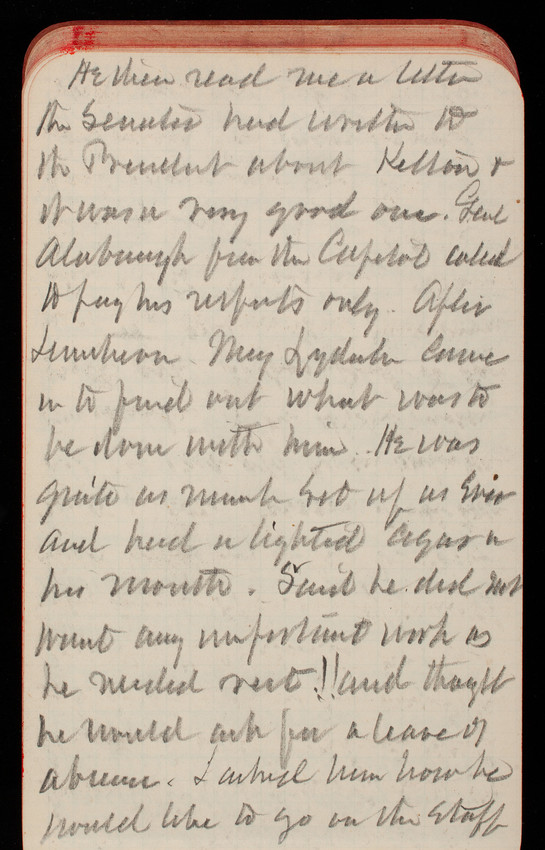 He then read me a letter
the Senator had written to
the President about Kelton &
it was a very good one. Genl
from the Capitol called
to pay his respects only. After
Luncheon Maj Lydecker came
in to find out what was to
be done with him. He was
quite as much sot up as ever
and had a lighted cigar in
his mouth. Said he did not
want any important work as
he needed rest!! and thought
he would ask for a leave of
absence. I asked him how he
would like to go on the staff